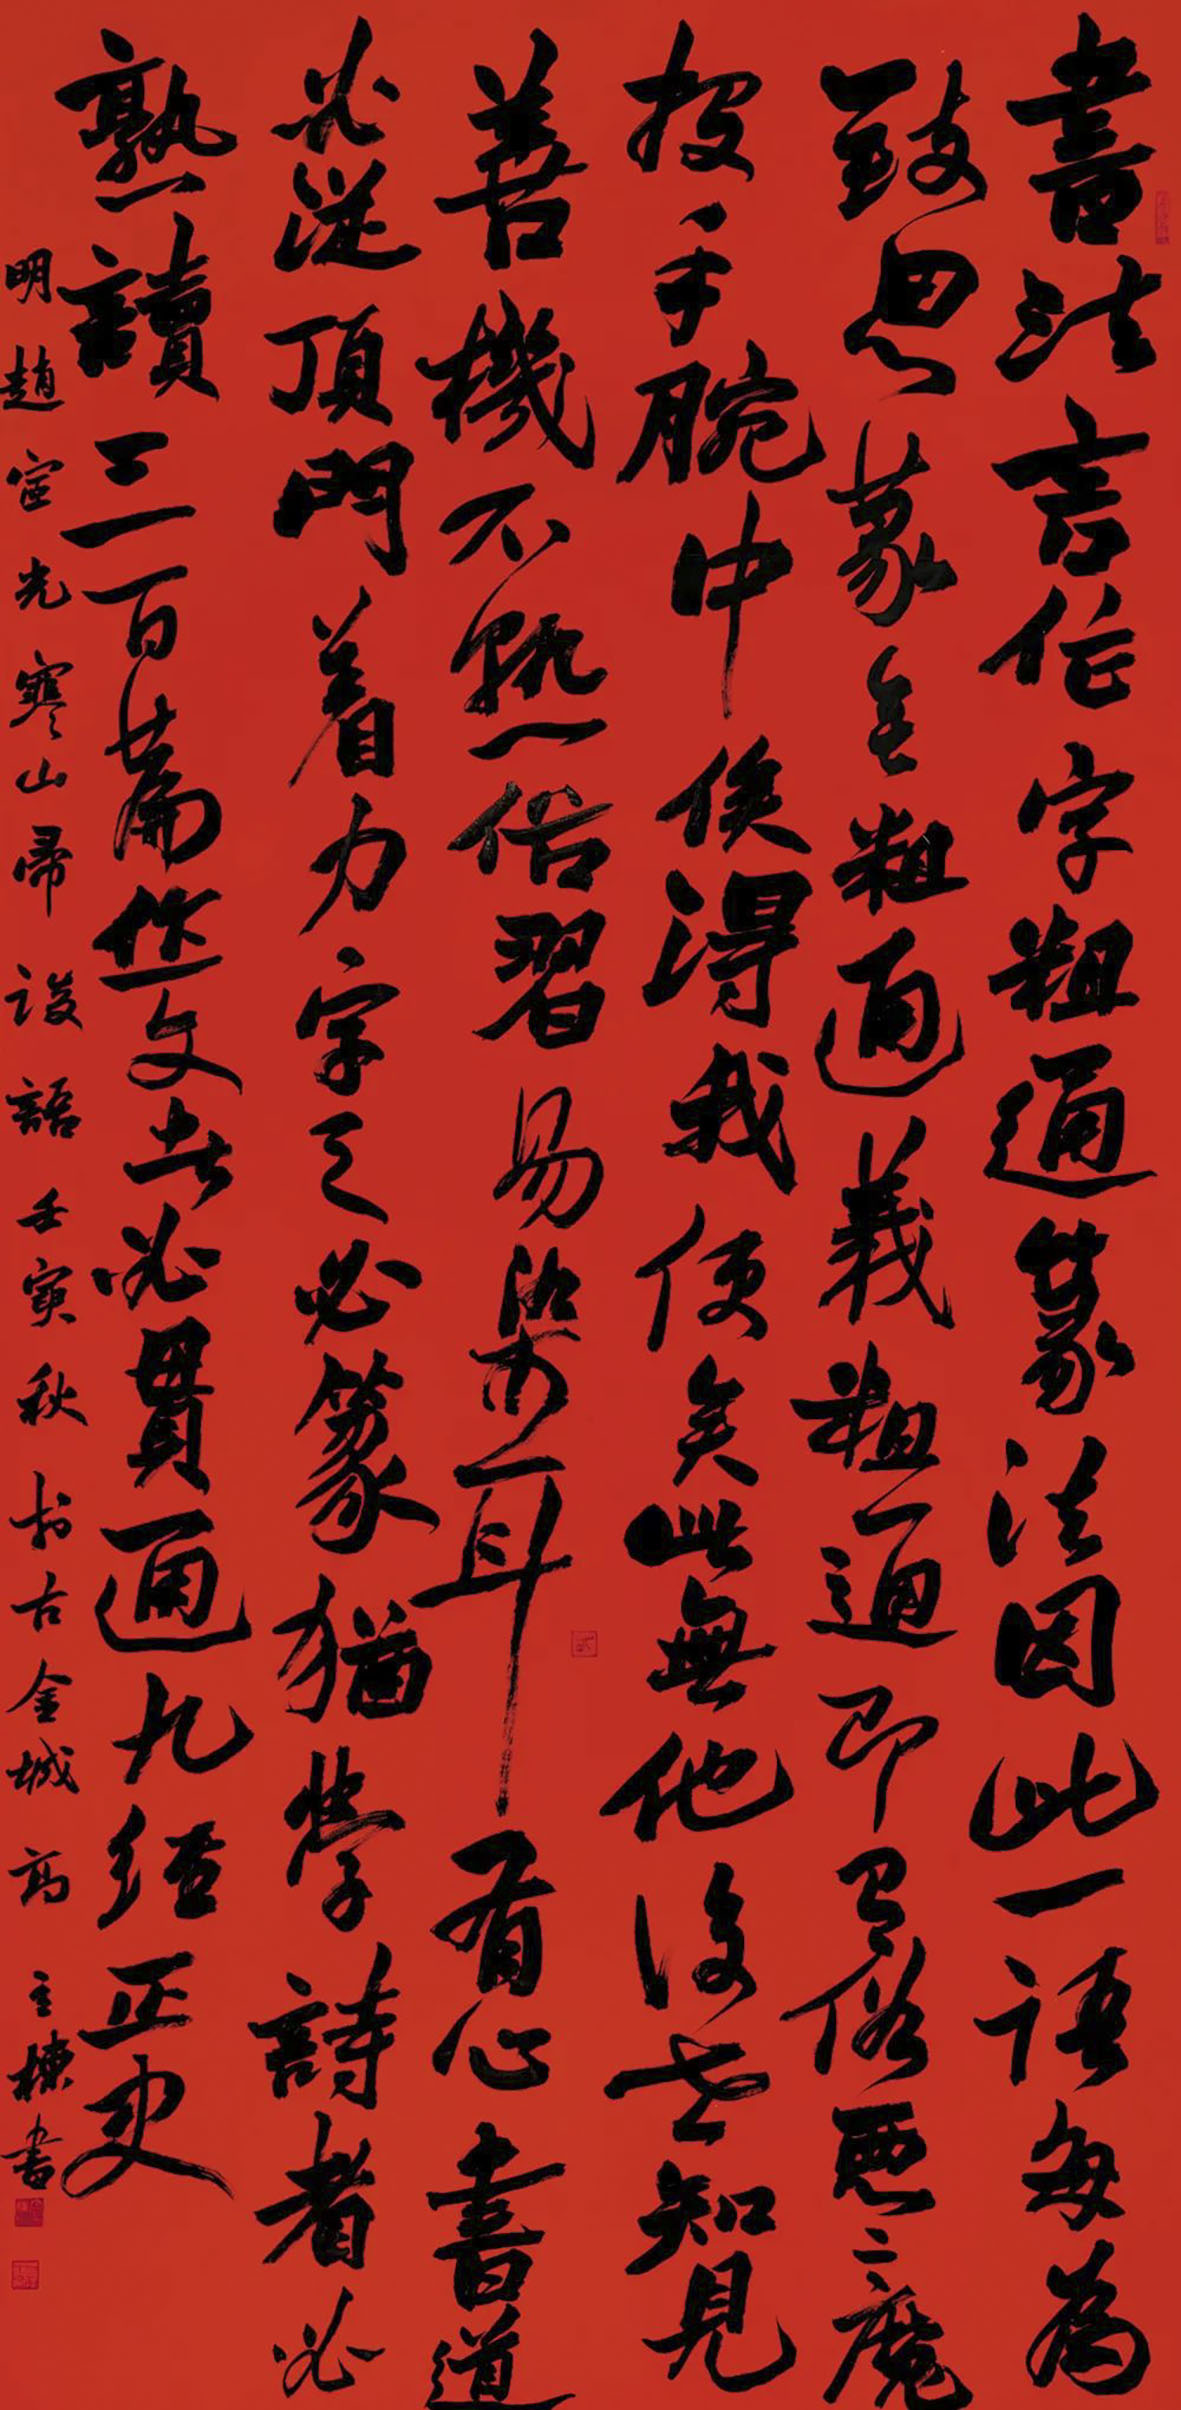 書法言作字粗通篆法因此一語每為
致思篆全粗通義粗通即有俗惡二魔
投手腕中俟得我便矣此無他後世知見
善機不熟俗習易染耳有心書道
必從頂門着力字之必篆猶學詩者必
熟讀三百篇作文者必貫通九經正史
明趙宧光寒山帚談語壬寅秋书古金城高主棟書